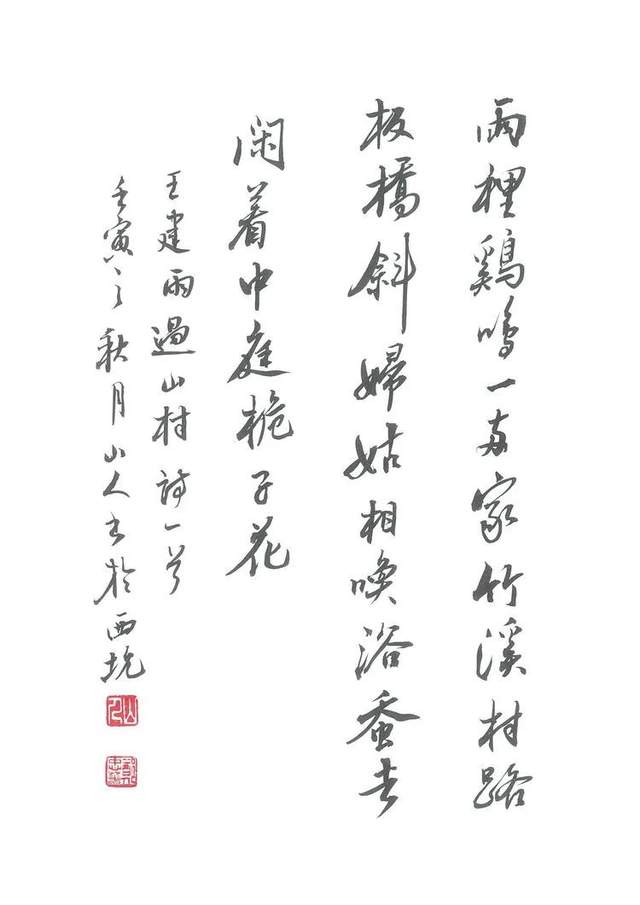 雨裡鷄鳴一兩家竹溪村路
板橋斜婦姑相喚浴蚕去
閑着中庭梔子花
王建雨過山村詩一首
壬寅之秋月山人書於西坑
山人